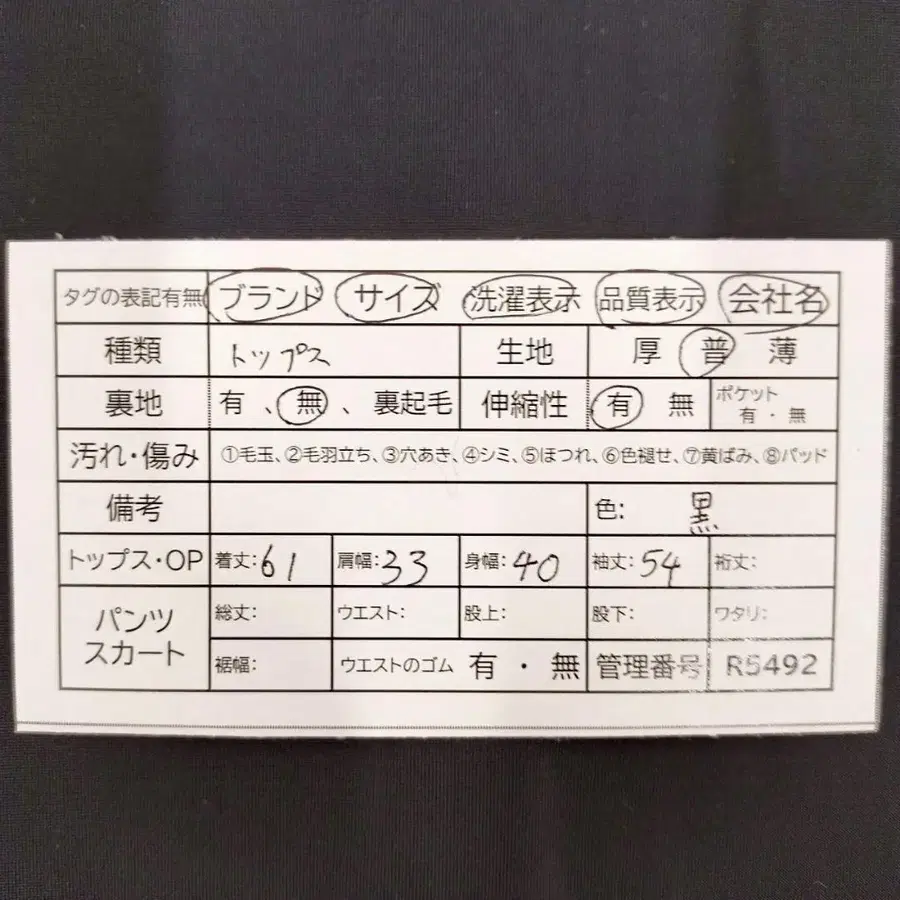 タグの表記有無 ブランド サイズ 洗濯表示 品質表示 会社名
種類 トップス 生地 厚 普 薄
裏地 有 、 無 、 裏起毛 伸縮性 有 無 ポケット 有・無
汚れ・傷み ①毛玉、②毛羽立ち、③穴あき、④シミ、⑤ほつれ、⑥色褪せ、⑦黄ばみ、⑧パッド
備考 色: 黒
トップス・OP 着丈:61 肩幅:33 身幅:40 袖丈:54 裄丈:
パンツ スカート 総丈: ウエスト: 股上: 股下: ワタリ:
裾幅: ウエストのゴム 有・無 管理番号 R5492